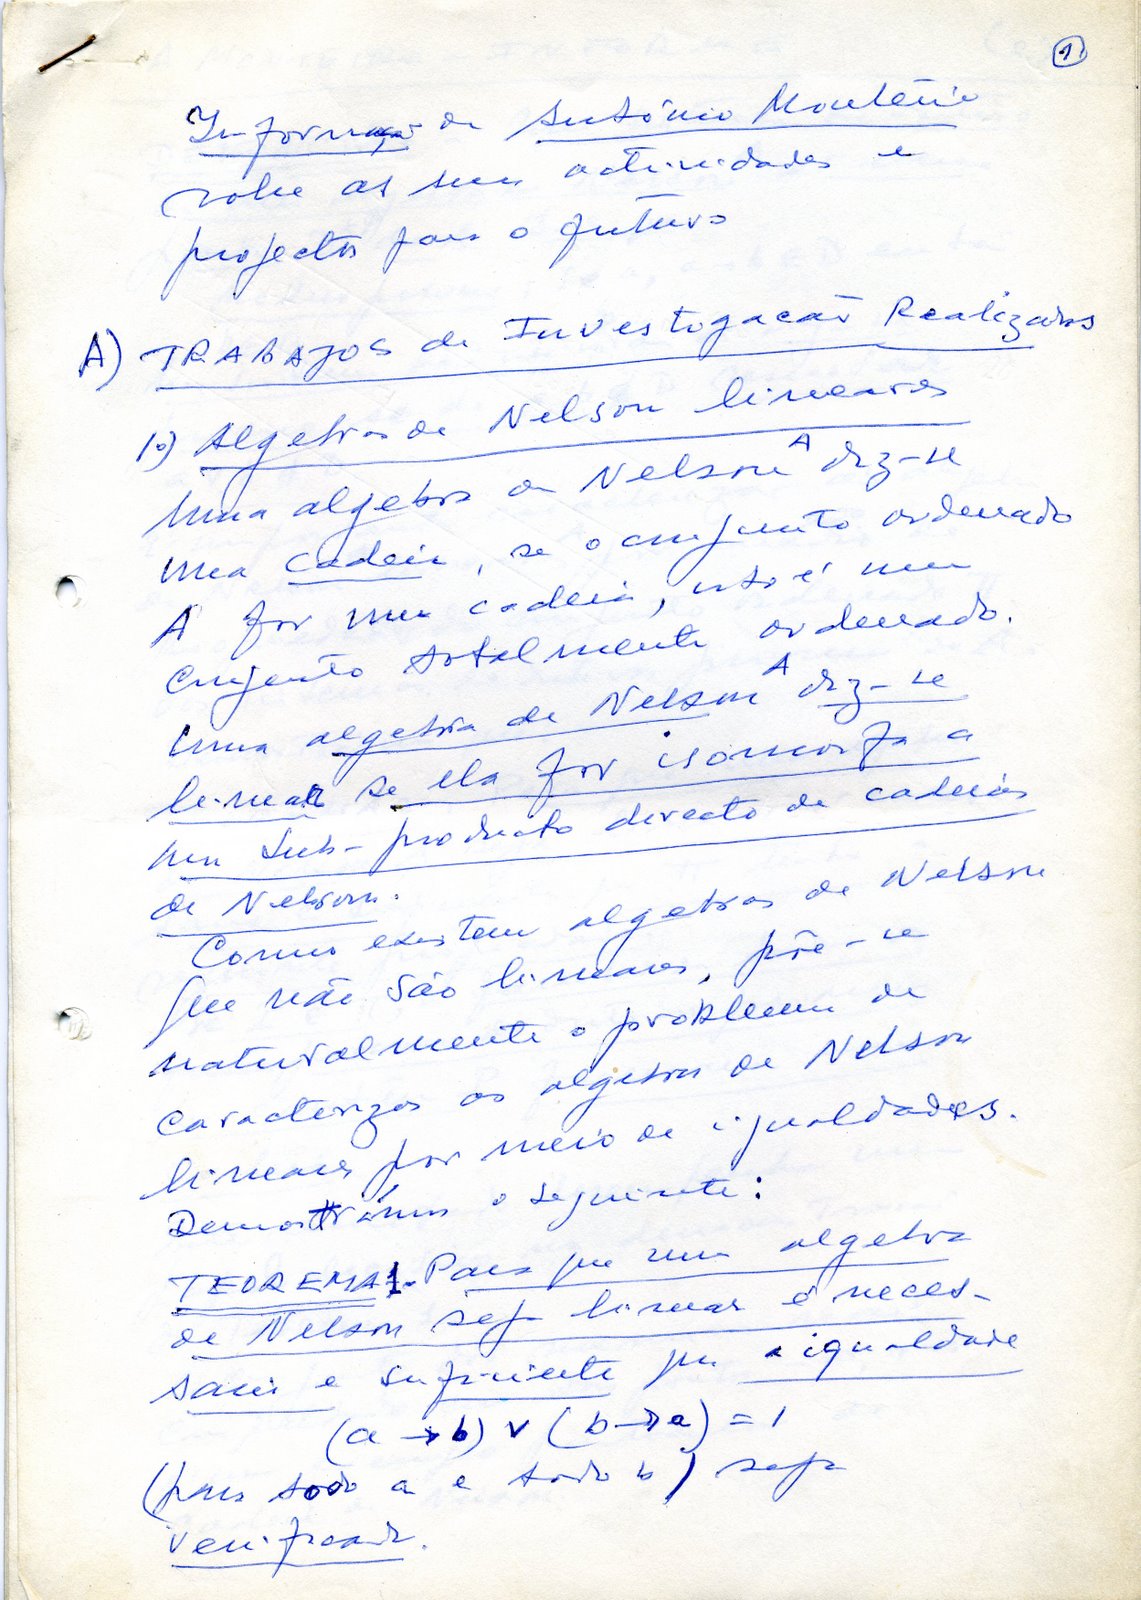 1
Informação de António Monteiro
sobre as suas actividades e
projectos para o futuro
A) TRABAJOS de Investogacão Realizados
1º) Algebras de Nelson lineares
Uma algebra de Nelson A diz-se
uma cadeia, se o conjunto ordenado
A for uma cadeia, isto é um
conjunto totalmente ordenado.
Uma algebra de Nelson A diz-se
linear se ela for isomorfa a
um sub-producto directo de cadeias
de Nelson.
Como existem algebras de Nelson
que não são lineares, põe-se
naturalmente o problema de
caracterizar as algebras de Nelson
lineares por meio de igualdades.
Demostrámos o seguinte:
TEOREMA 1. Para que uma algebra
de Nelson seja linear é neces-
saria e suficiente que a igualdade
(a → b) v (b → a) = 1
(para todo a e todo b) seja
verificada.